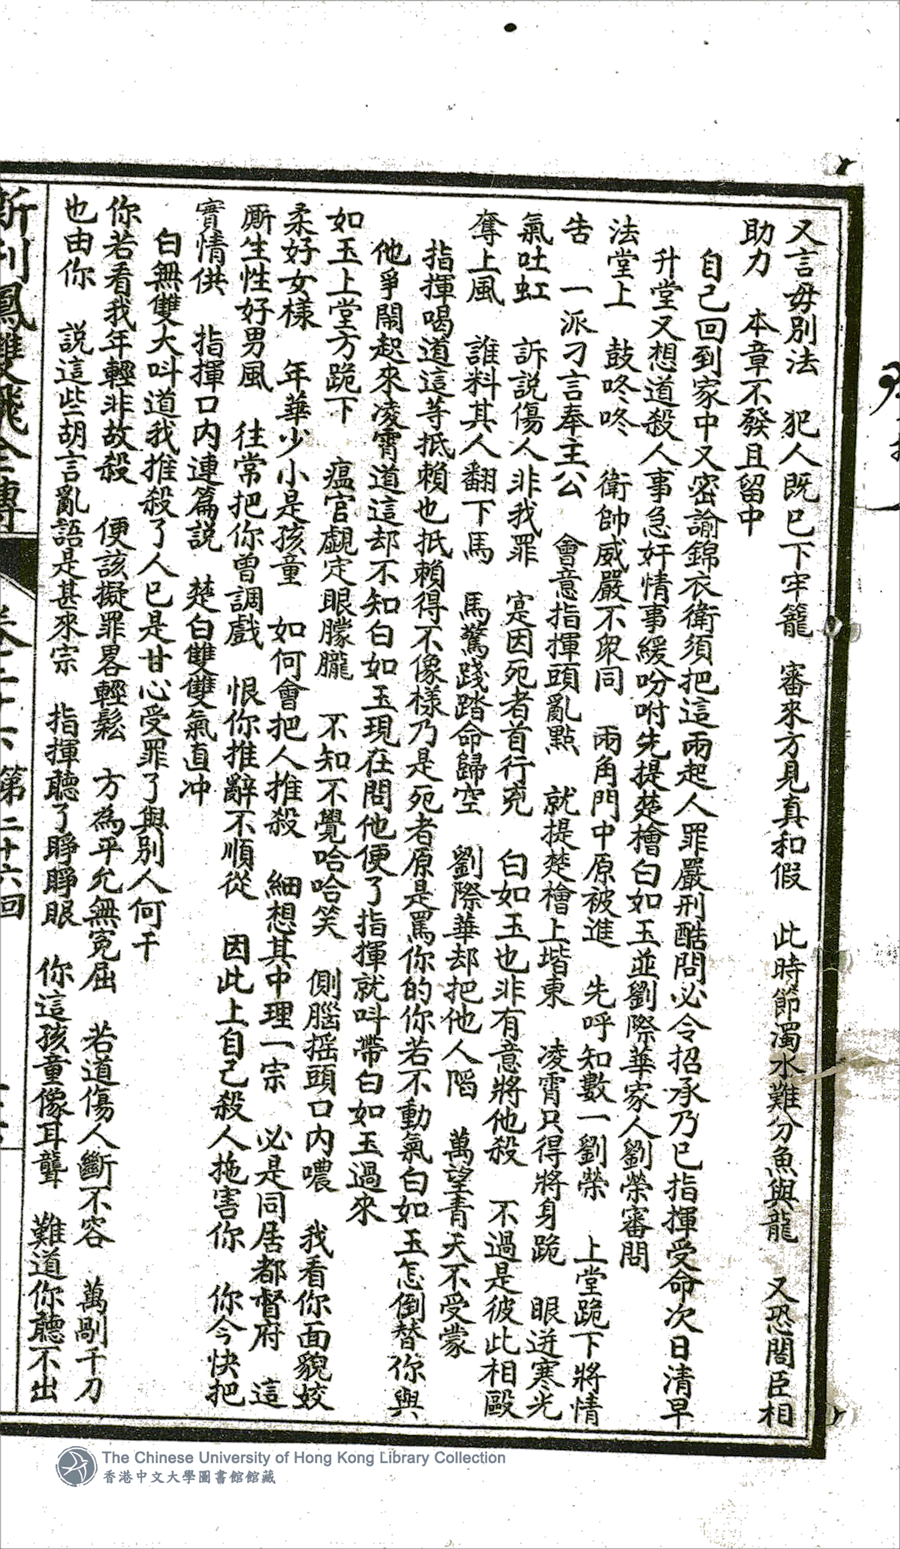 又言毋別法　犯人既已下牢籠　審來方見真和假　此時節濁水難分魚與龍　又恐閣臣相
助力　本章不發且留中
自己回到家中又密諭錦衣衛須把這兩起人罪嚴刑酷問必令招承乃已指揮受命次日清早
升堂又想道殺人事急奸情事緩吩咐先提楚檜白如玉並劉際華家人劉榮審問
法堂上　鼓咚咚　衛帥威嚴不衆同　兩角門中原被進　先呼知數一劉榮　上堂跪下將情
告　一派刁言奉主公　會意指揮頭亂點　就提楚檜上堦東　凌霄只得將身跪　眼迸寒光
氣吐虹　訴說傷人非我罪　寔因死者首行兇　白如玉也非有意將他殺　不過是彼此相毆
奪上風　誰料其人翻下馬　馬驚踐踏命歸空　劉際華却把他人陷　萬望青天不受蒙
指揮喝道這等抵賴也抵賴得不像樣乃是死者原是罵你的你若不動氣白如玉怎倒替你與
他爭鬧起來凌霄道這却不知白如玉現在問他便了指揮就叫帶白如玉過來
如玉上堂方跪下　瘟官覷定眼朦朧　不知不覺哈哈笑　側腦摇頭口內噥　我看你面貌姣
柔好女樣　年華少小是孩童　如何會把人推殺　細想其中理一宗　必是同居都督府　這
厮生性好男風　往常把你曾調戲　恨你推辭不順從　因此上自己殺人拖害你　你今快把
實情供　指揮口內連篇說　楚白雙雙氣直冲
白無雙大叫道我推殺了人已是甘心受罪了與別人何干
你若看我年輕非故殺　便該擬罪畧輕鬆　方為平允無寃屈　若道傷人斷不容　萬剮千刀
也由你　說這些胡言亂語是甚來宗　指揮聽了睜睜眼　你這孩童像耳聾　難道你聽不出
新刊鳳雙飛全傳
第二十六回
The Chinese University of Hong Kong Library Collection
香港中文大學圖書館館藏